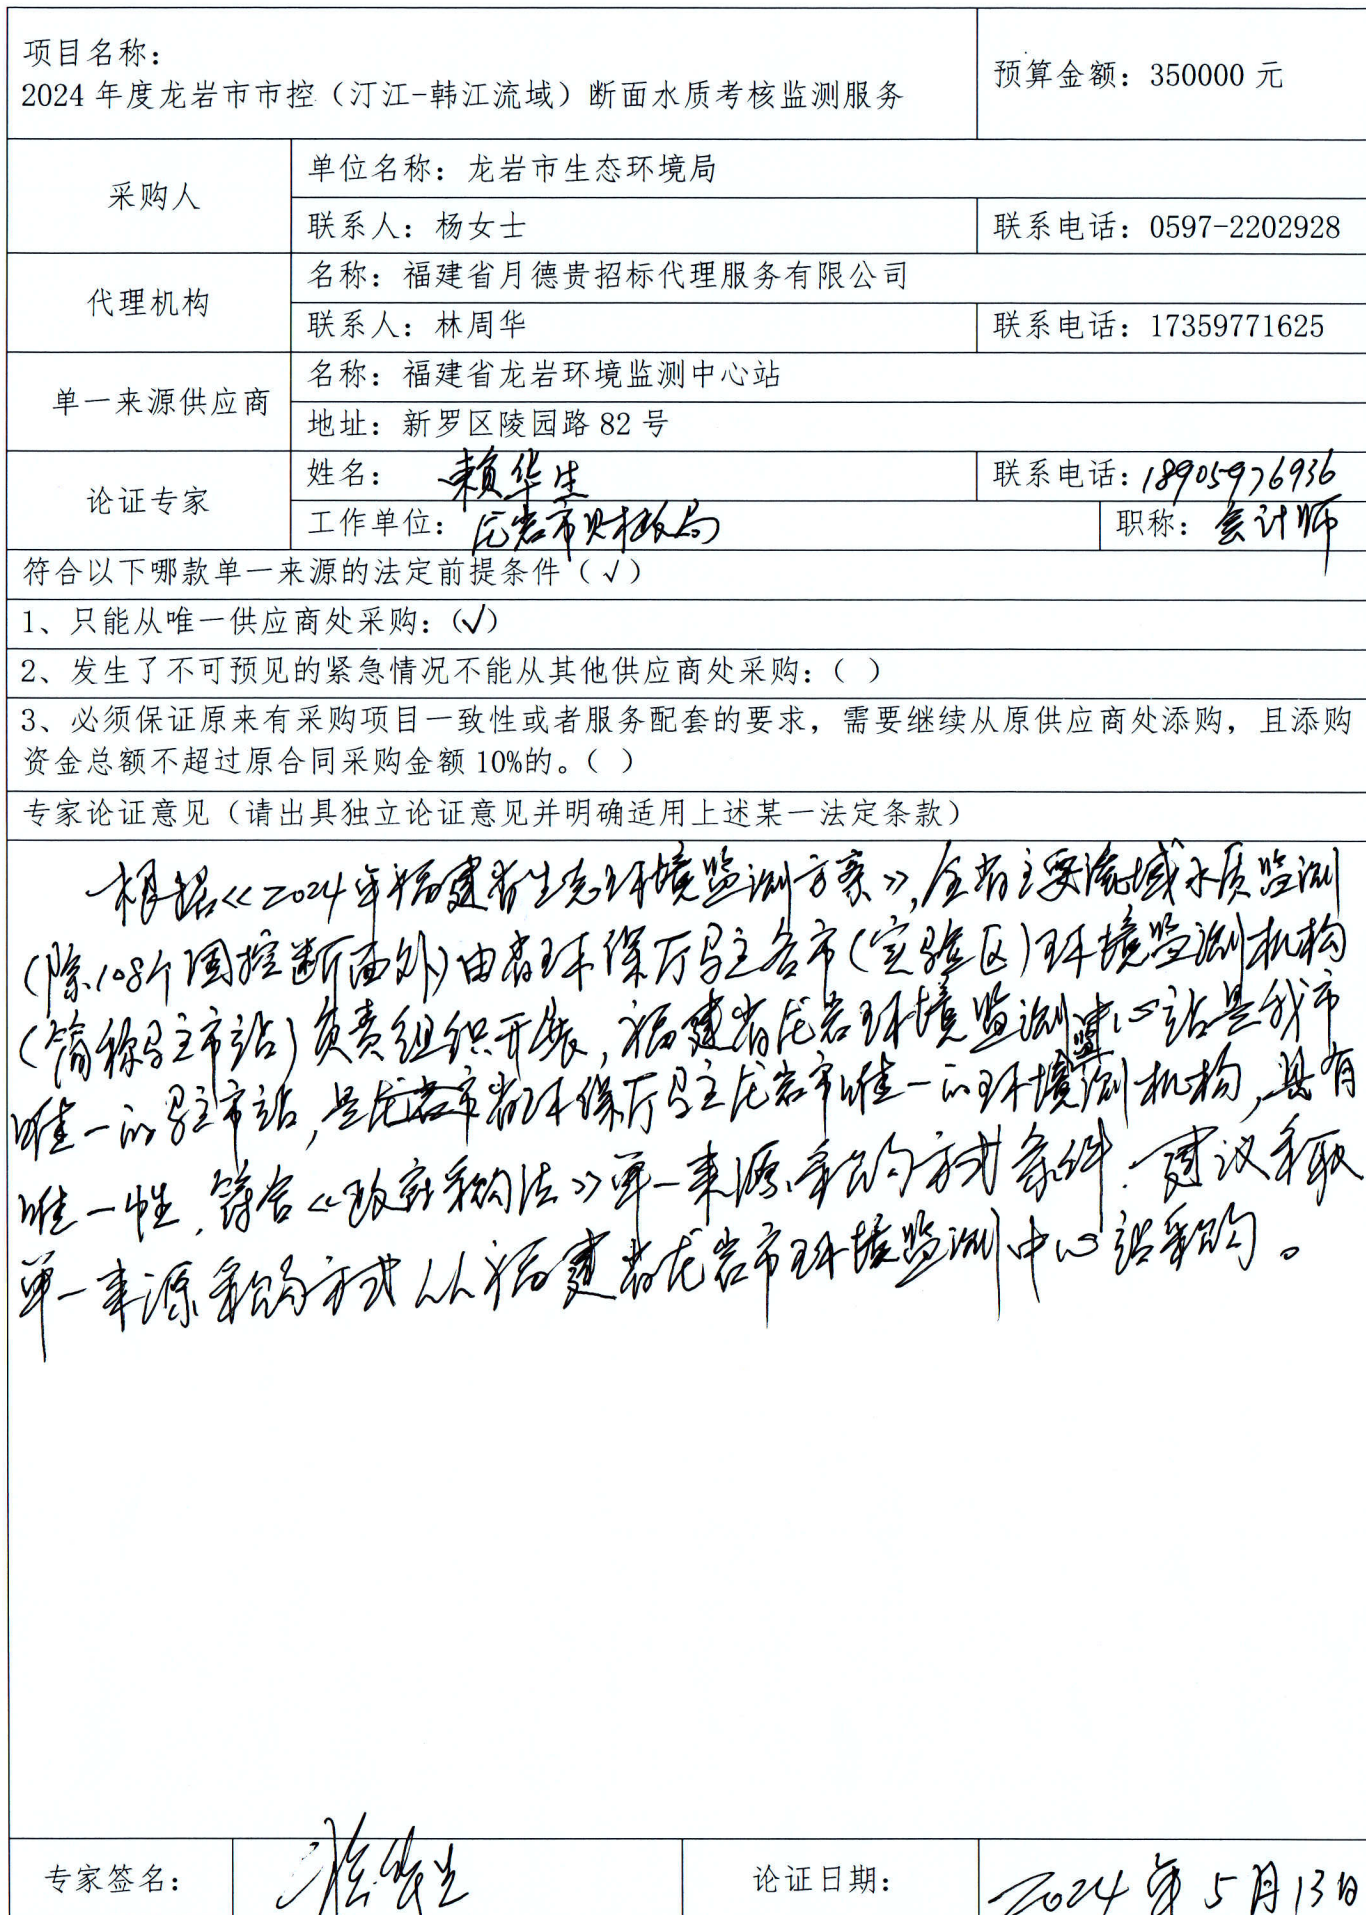 项目名称：
预算金额：350000 元
2024 年度龙岩市市控（汀江-韩江流域）断面水质考核监测服务
采购人
单位名称：龙岩市生态环境局
联系人：杨女士
联系电话：0597-2202928
代理机构
名称：福建省月德贵招标代理服务有限公司
联系人：林周华
联系电话：17359771625
单一来源供应商
名称：福建省龙岩环境监测中心站
地址：新罗区陵园路 82 号
论证专家
姓名：赖华生
联系电话：18905976936
工作单位：龙岩市财政局
职称：会计师
符合以下哪款单一来源的法定前提条件（√）
1、只能从唯一供应商处采购：（√）
2、发生了不可预见的紧急情况不能从其他供应商处采购：（ ）
3、必须保证原来有采购项目一致性或者服务配套的要求，需要继续从原供应商处添购，且添购
资金总额不超过原合同采购金额 10%的。（ ）
专家论证意见（请出具独立论证意见并明确适用上述某一法定条款）
根据《2024年福建省生态环境监测方案》，全省主要流域水质监测
（除108个国控断面外）由省环保厅驻各市（实验区）环境监测机构
（简称驻市站）负责组织开展，福建省龙岩环境监测中心站是我市
唯一的驻市站，是龙岩市省环保厅驻龙岩市唯一的环境监测机构，具有
唯一性，符合《政府采购法》单一来源采购方式条件．建议采取
单一来源采购方式从福建省龙岩市环境监测中心站采购。
专家签名：
赖华生
论证日期：
2024年5月13日